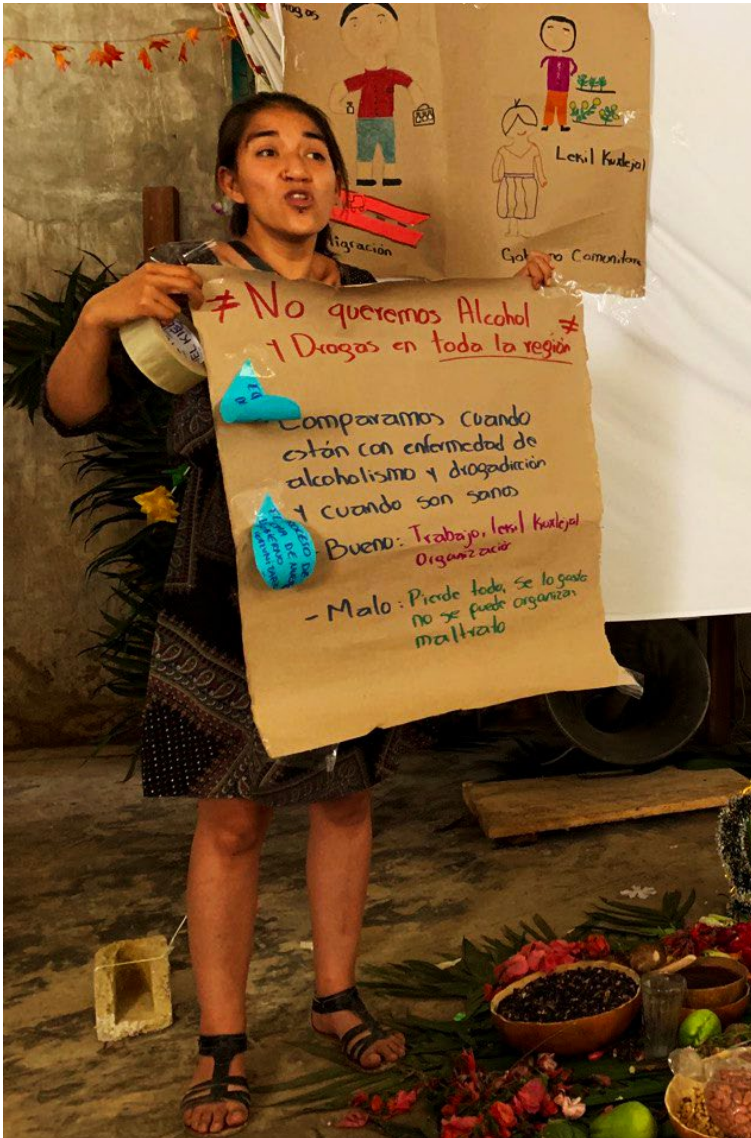 rogas
Lekil Kuxlejal
Migración
Gobierno Comunitario
≠ No queremos Alcohol ≠
y Drogas en toda la región
Comparamos cuando
están con enfermedad de
alcoholismo y drogadicción
y cuando son sanos
- Bueno: Trabajo, lekil Kuxlejal
Organización
- Malo: Pierde todo, se lo gasta
no se puede organizar
maltrato